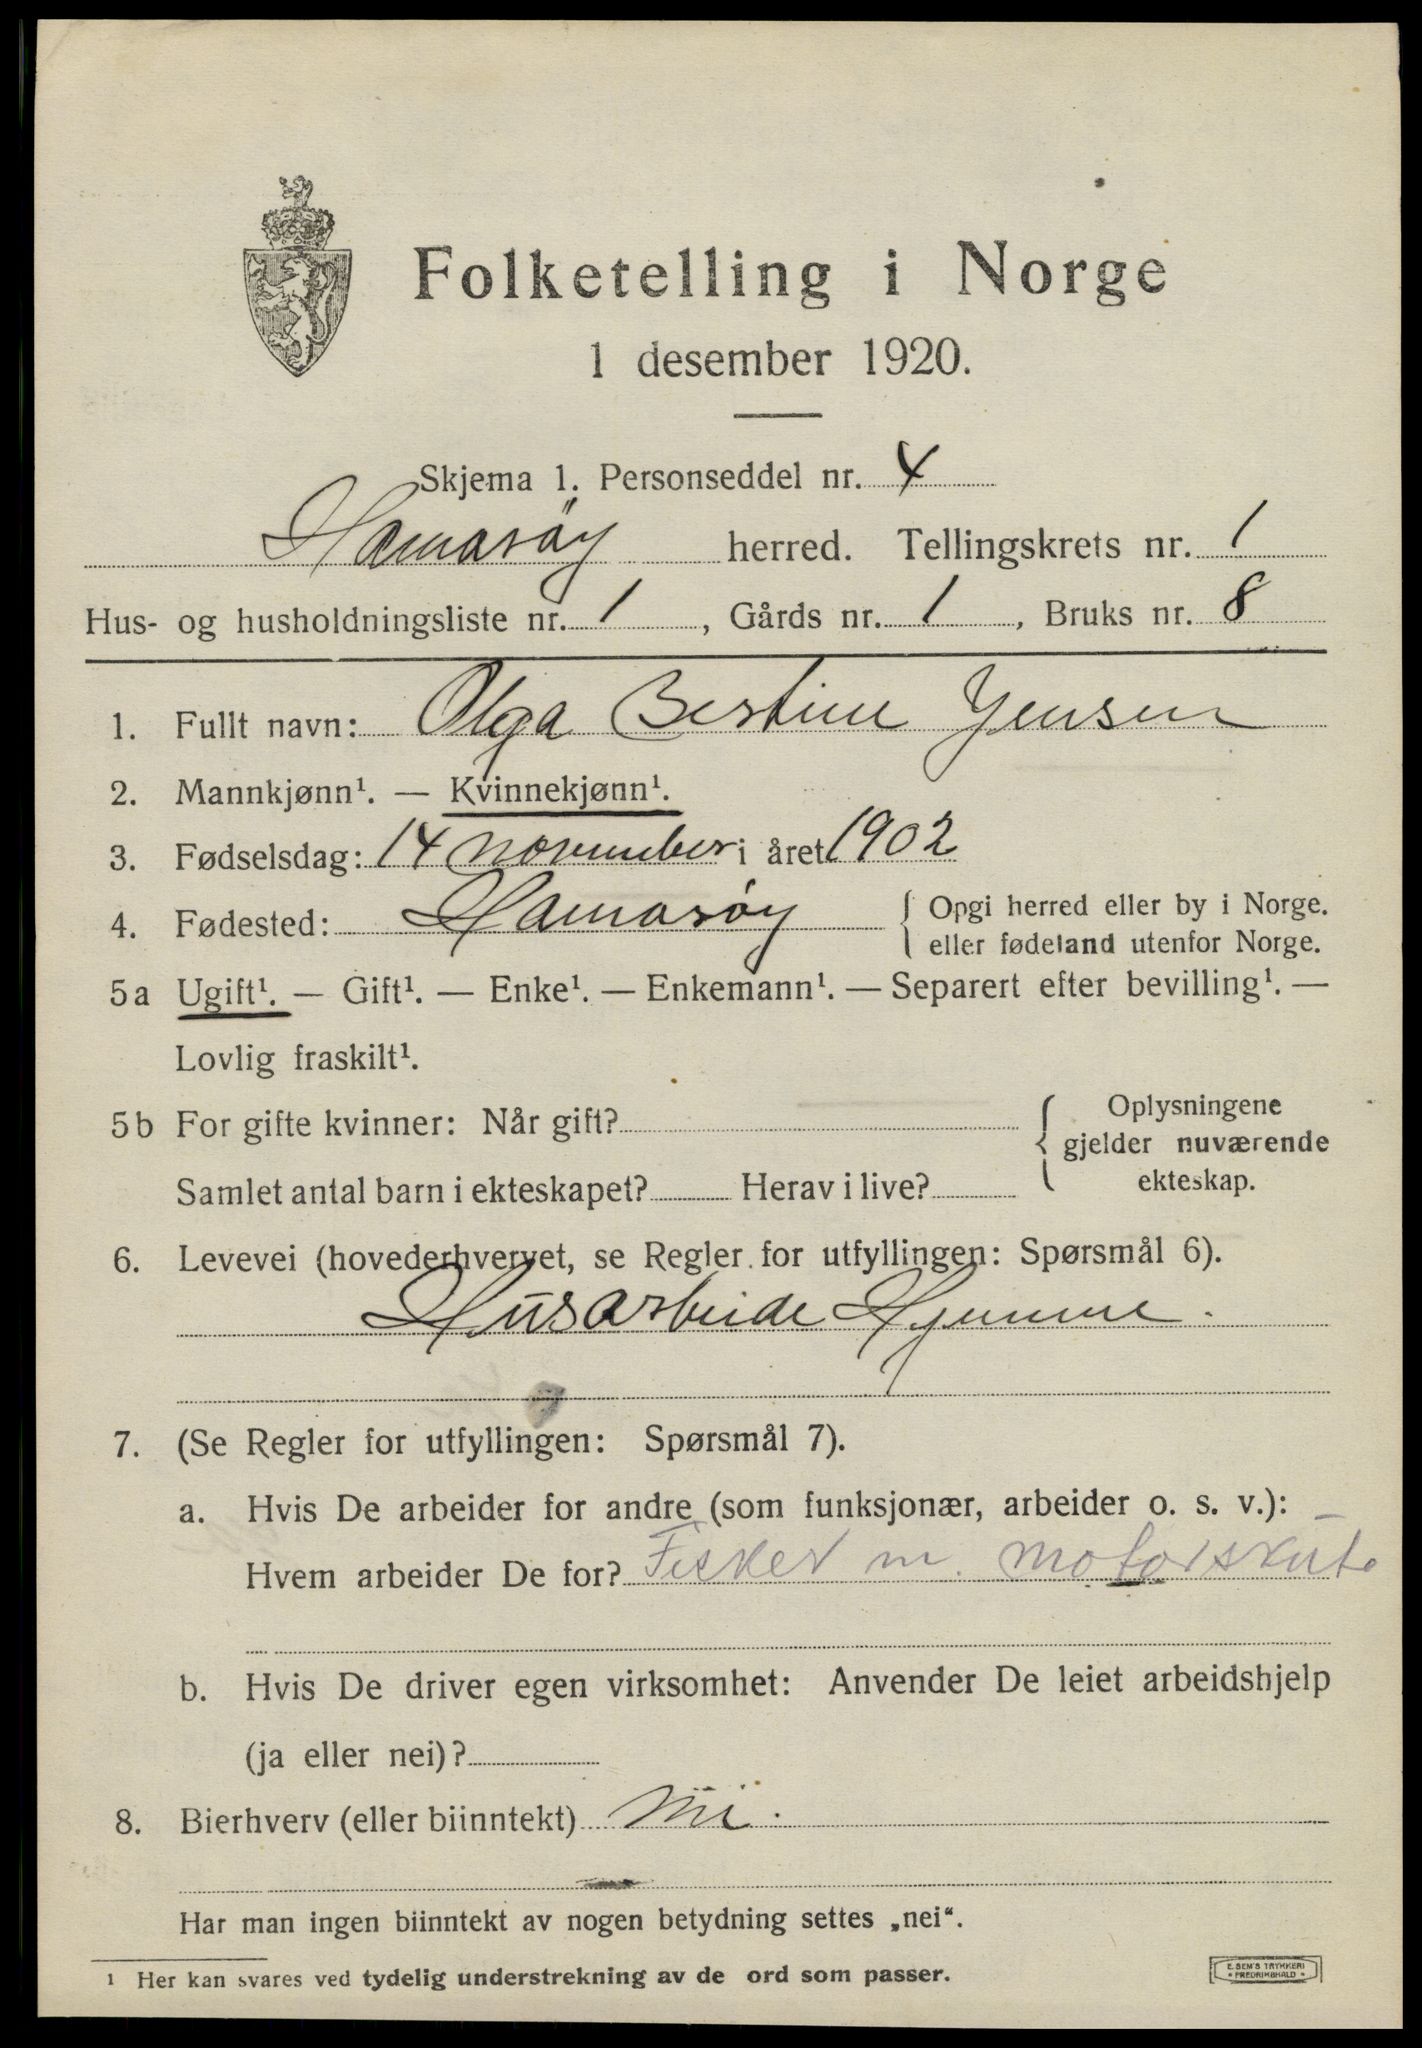 Folketelling i Norge
1 desember 1920.
Skjema 1. Personseddel nr. 4
Hamarøy herred. Tellingskrets nr. 1
Hus- og husholdningsliste nr. 1, Gårds nr. 1, Bruks nr. 8
1. Fullt navn: Olga Bertine Jensen
2. Mannkjønn¹. — Kvinnekjønn¹.
3. Fødselsdag: 14 november i året 1902
4. Fødested: Hamarøy { Opgi herred eller by i Norge.
eller fødeland utenfor Norge.
5a Ugift¹. — Gift¹. — Enke¹. — Enkemann¹. — Separert efter bevilling¹. —
Lovlig fraskilt¹.
5b For gifte kvinner: Når gift? { Oplysningene
gjelder nuværende
Samlet antal barn i ekteskapet? Herav i live? ekteskap.
6. Levevei (hovederhvervet, se Regler for utfyllingen: Spørsmål 6).
Husarbeide Hjemme.
7. (Se Regler for utfyllingen: Spørsmål 7).
a. Hvis De arbeider for andre (som funksjonær, arbeider o. s. v.):
Hvem arbeider De for? Fisker m. motorskute
b. Hvis De driver egen virksomhet: Anvender De leiet arbeidshjelp
(ja eller nei)?
8. Bierhverv (eller biinntekt) nei.
Har man ingen biinntekt av nogen betydning settes „nei“.
¹ Her kan svares ved tydelig understrekning av de ord som passer.
E. SEM'S TRYKKERI
* FREDRIKSHALD *